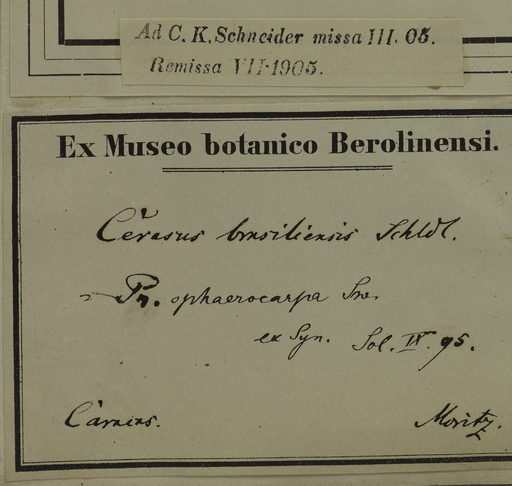 Ad C. K. Schneider missa III. 05.
Remissa VII·1905.
Ex Museo botanico Berolinensi.
Cerasus brasiliensis Schldl.
= Pr. sphaerocarpa Sw.
ex Syn. Sol. IX. 95.
Caracas.
Moritz.